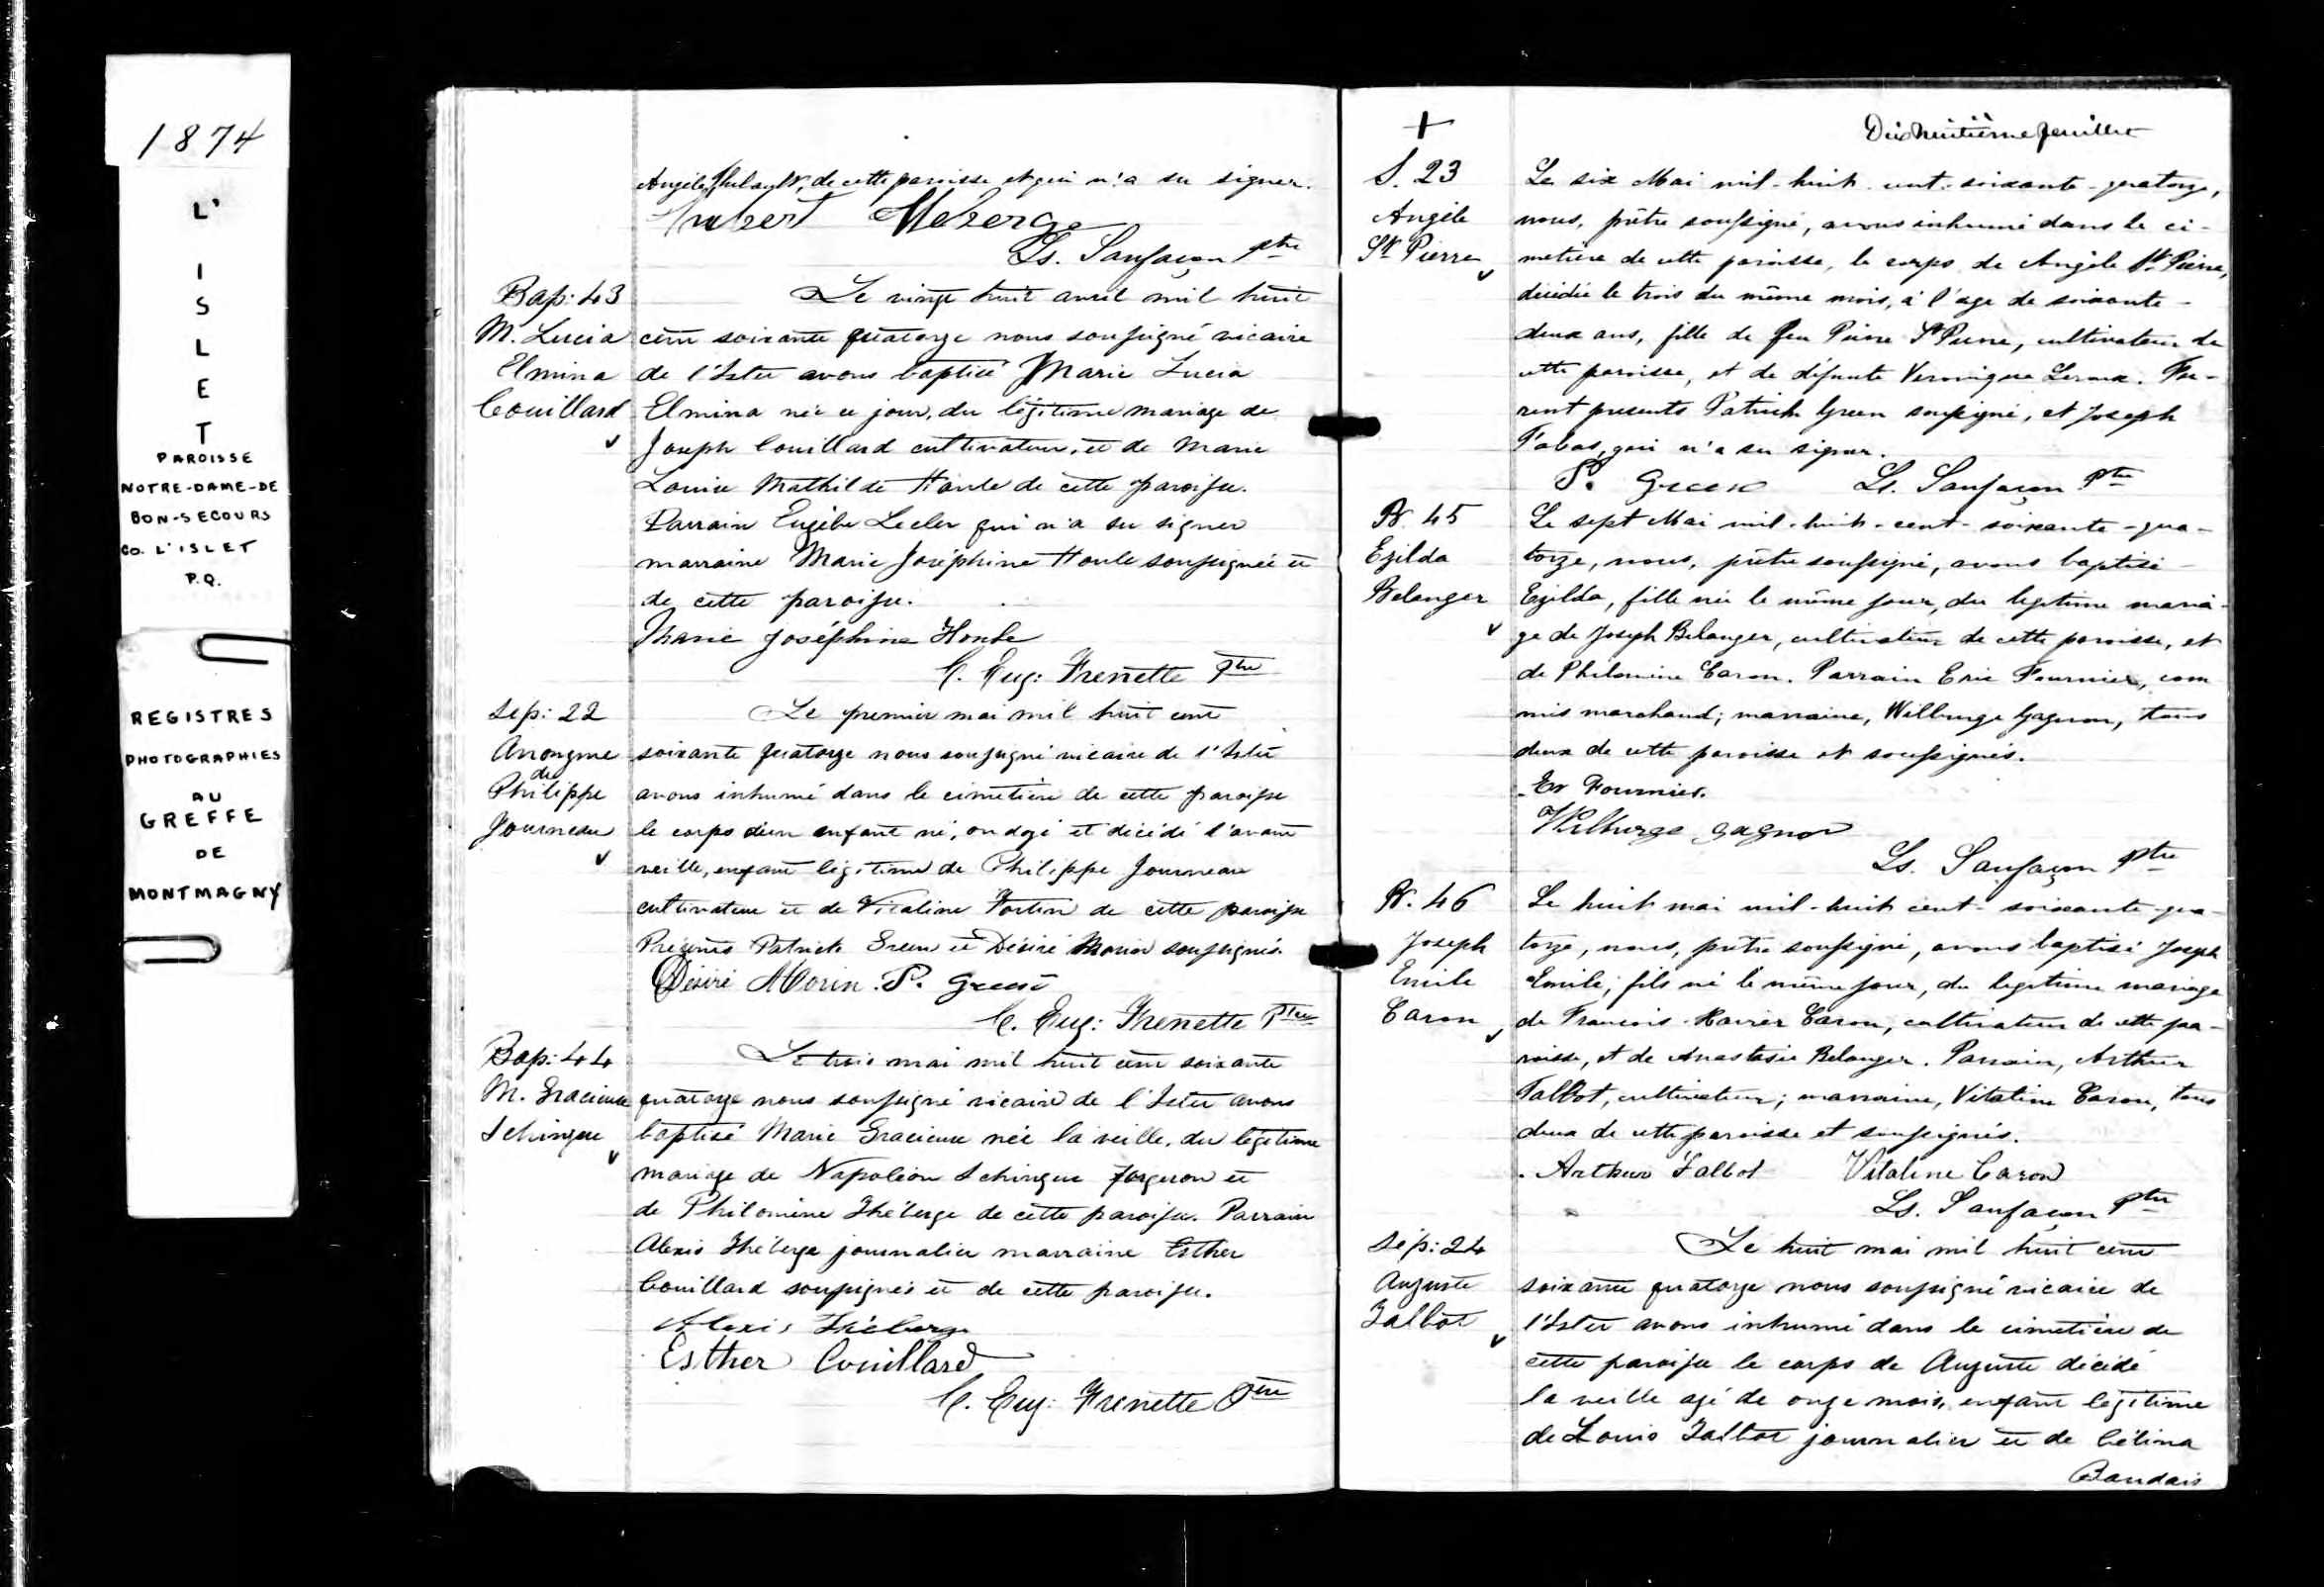 1874
L'
I
S
L
E
T
PAROISSE
NOTRE-DAME-DE
BON-SECOURS
Co. L'ISLET
P.Q.
REGISTRES
PHOTOGRAPHIES
AU
GREFFE
DE
MONTMAGNY
Angèle de cette paroisse et qui n'a su signer.
Ls. Sanfaçon Ptre
Bap: 43
M. Lucia
Elmina
Couillard
Le vingt huit avril mil huit
cent soixante quatorze nous soussigné vicaire
de l'Islet avons baptisé Marie Lucia
Elmina née ce jour, du légitime mariage de
Joseph Couillard cultivateur, et de Marie
Louise Mathilde Houle de cette paroisse.
Parrain Eugèbe Lecler qui n'a su signer
marraine Marie Joséphine Houle soussignée et
de cette paroisse.
Marie Joséphine Houle
C. Eug: Frenette Ptre
Sep: 22
Anonyme
de
Philippe
Journeau
Le premier mai mil huit cent
soixante quatorze nous soussigné vicaire de l'Islet
avons inhumé dans le cimetière de cette paroisse
le corps d'un enfant né, ondoyé et décédé l'avant
veille, enfant légitime de Philippe Journeau
cultivateur et de Vitaline Fortin de cette paroisse
Présents Patrick Green et Désiré Morin soussignés.
Désiré Morin. P. Green
C. Eug: Frenette Ptre
Bap: 44
M. Gracieuse
Schingue
Le trois mai mil huit cent soixante
quatorze nous soussigné vicaire de l'Islet avons
baptisé Marie Gracieuse née la veille, du légitime
mariage de Napoléon Schingue forgeron et
de Philomène Théberge de cette paroisse. Parrain
Alexis Théberge journalier marraine Esther
Couillard soussignés et de cette paroisse.
Alexis Théberge
Esther Couillard
C. Eug: Frenette Ptre
Dix huitième feuillet
+
S. 23
Angèle
St Pierre
Le six Mai mil-huit-cent-soixante-quatorze,
nous, prêtre soussigné, avons inhumé dans le ci-
metière de cette paroisse, le corps de Angèle St Pierre,
décédée le trois du même mois, à l'age de soixante-
deux ans, fille de feu Pierre St Pierre, cultivateur de
cette paroisse, et de défunte Veronique Leroux. Fu-
rent presents Patrick Green soussigné, et Joseph
qui n'a su signer.
P. Green Ls. Sanfaçon Ptre
B. 45
Ezilda
Belanger
Le sept Mai mil-huit-cent-soixante-qua-
torze, nous, prêtre soussigné, avons baptisé
Ezilda, fille née le même jour, du legitime maria-
ge de Joseph Belanger, cultivateur de cette paroisse, et
de Philomène Caron. Parrain Eric Fournier, com
mis marchand; marraine, Wilburge Gagnon, tous
deux de cette paroisse et soussignés.
Er Fournier.
Wilburge Gagnon
Ls. Sanfaçon Ptre
B. 46
Joseph
Emile
Caron
Le huit mai mil-huit cent-soixante-qua-
torze, nous, prêtre soussigné, avons baptisé Joseph
Emile, fils né le même jour, du legitime mariage
de François-Xavier Caron, cultivateur de cette pa-
roisse, et de Anastasie Belanger. Parrain, Arthur
Talbot, cultivateur; marraine, Vitaline Caron, tous
deux de cette paroisse et soussignés.
Arthur Talbot Vitaline Caron
Ls. Sanfaçon Ptre
Sép: 24
Auguste
Talbot
Le huit mai mil huit cent
soixante quatorze nous soussigné vicaire de
l'Islet avons inhumé dans le cimetière de
cette paroisse le corps de Auguste décédé
la veille agé de onze mois, enfant légitime
de Louis Talbot journalier et de Célina
Baudais